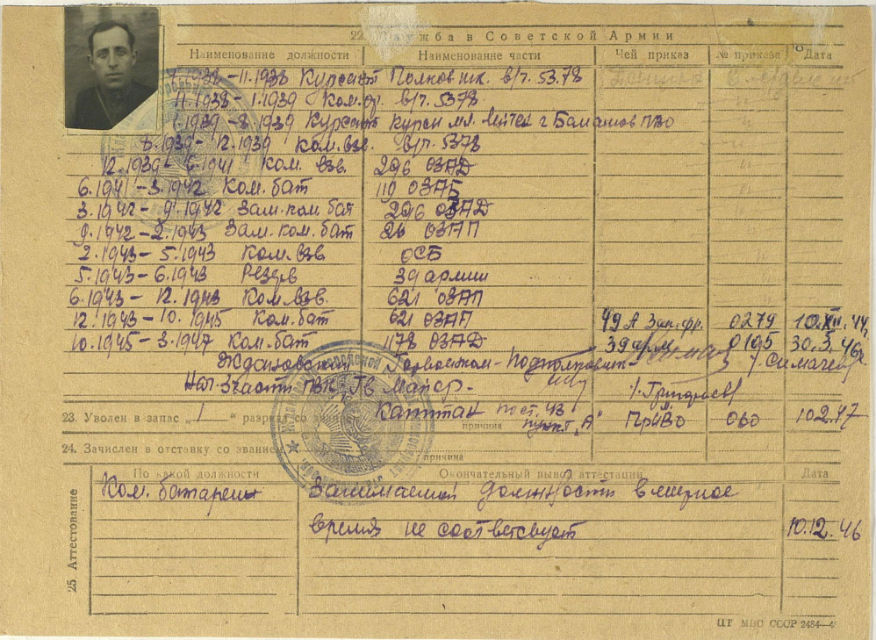 22. Служба в Советской Армии
Наименование должности Наименование части Чей приказ № приказа Дата
-11.1938 Курсант в/ч. 5378
11.1938 - 1.1939 Ком.от. в/ч. 5378
1939 - 8.1939 Курсант курсы мл. лейтен. г Балашов ПВО
8.1939 - 12.1939 Ком. взв. в/ч. 5378
12.1939 - 6.1941 Ком. взв. 296 ОЗАД
6.1941 - 3.1942 Ком. бат 110 ОЗАБ
3.1942 - 9.1942 Зам. ком бат 296 ОЗАД
9.1942 - 2.1943 Зам. ком. бат 26 ОЗАП
2.1943 - 5.1943 Ком. взв ОСБ
5.1943 - 6.1943 Резерв 39 армии
6.1943 - 12.1943 Ком. взв. 621 ОЗАП
12.1943 - 10.1945 Ком. бат 621 ОЗАП 49 А Зап. фр. 0279 10.XII.44
10.1945 - 3.1947 Ком. бат 1178 ОЗАД 39 арм 0195 30.5.46г
Ждановский Горвоенком - Подполковник
Нач. 3 части ГВК Гв. Майор
23. Уволен в запас „1“ разряда со Капитан пост. 43 пункт „А“ ПриВО 060 10.2.47
причина
24. Зачислен в отставку со званием
причина
25 Аттестование
По какой должности Окончательный вывод аттестации Дата
Ком. батареи Занимаемой должности в мирное
время не соответсвует 10.12.46
ЦТ МВС СССР 2484—4